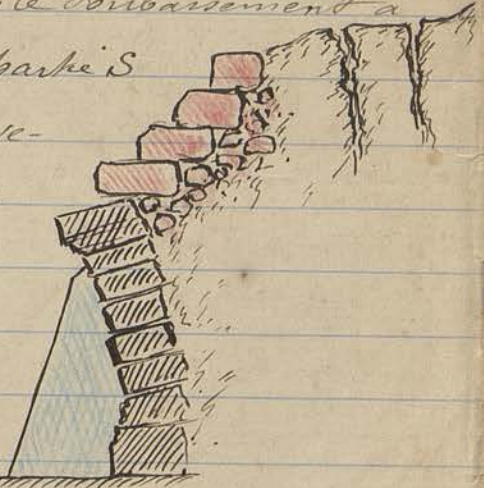 le soubassement a
partie S
ve-